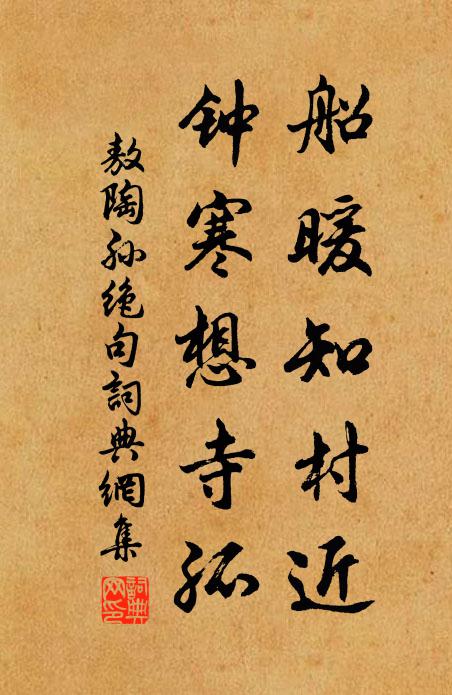 船暖知村近
钟寒想寺孤
敖陶孙絶句詞典網集
詞典网印